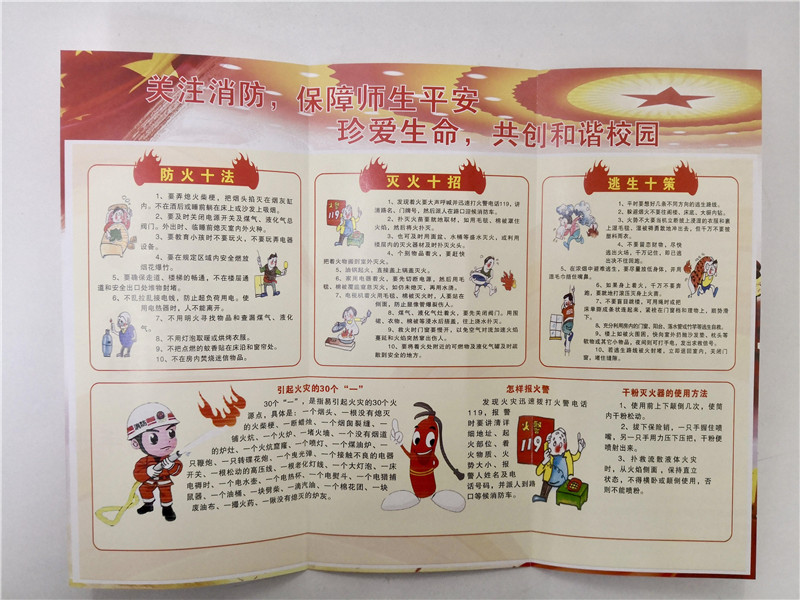 关注消防，保障师生平安
珍爱生命，共创和谐校园
防火十法
1、要弄熄火柴梗，把烟头掐灭在烟灰缸
内，不在酒后或睡前躺在床上或沙发上吸烟。
2、要及时关闭电源开关及煤气、液化气总
阀门。外出时，临睡前熄灭室内外火种。
3、要教育小孩时不要玩火，不要玩弄电器
设备。
4、要在规定区域内安全燃放
烟花爆竹。
5、要确保走道、楼梯的畅通，不在楼层通
道和安全出口处堆物封堵。
6、不乱拉乱接电线，防止超负荷用电。使
用电热器时，人不能离开。
7、不用明火寻找物品和查漏煤气、液化
气。
8、不用灯泡取暖或烘烤衣服。
9、不把点燃的蚊香贴在床沿和窗帘处。
10、不在房内焚烧迷信物品。
灭火十招
1、发现着火要大声呼喊并迅速打火警电话119，讲
清路名、门牌号，然后派人在路口迎候消防车。
2、扑灭火苗要就地取材，如用毛毯、棉被罩住
火焰，然后将火扑灭。
3、也可及时用面盆、水桶等盛水灭火，或利用
楼层内的灭火器材及时扑灭火头。
4、个别物品着火，要赶快
把着火物搬到室外灭火。
5、油锅起火，直接盖上锅盖灭火。
6、家用电器着火，要先切断电源，然后用毛
毯、棉被覆盖窒息灭火，如仍未熄灭，再用水浇。
7、电视机着火用毛毯、棉被灭火时，人要站在
侧面，防止显像管爆裂伤人。
8、煤气、液化气灶着火，要先关闭阀门。用围
裙、衣物、棉被等浸水后捂盖，往上浇水扑灭。
9、救火时门窗要慢开，以免空气对流加速火焰
蔓延和火焰突然窜出伤人。
10、要将着火处附近的可燃物及液化气罐及时疏
散到安全的地方。
逃生十策
1、平时要想好几条不同方向的逃生路线。
2、躲避烟火不要往阁楼、床底、大厨内钻。
3、火势不大要当机立断披上浸湿的衣服和裹
上湿毛毯、湿被褥勇敢地冲出去，但千万不要披
塑料雨衣。
4、不要留恋财物，尽快
逃出火场，千万记住，即已逃
出决不往回跑。
5、在浓烟中避难逃生，要尽量放低身体，并用
湿毛巾捂住嘴鼻。
6、如果身上着火，千万不要奔
跑，要就地打滚压灭身上火苗。
7、不要盲目跳楼，可用绳杆或把
床单撕成条状连起来，紧拴在门窗档和重物上，顺势滑
下。
8、充分利用房内的门窗、阳台、落水管或竹竿等逃生自救。
9、楼上如被火困困，快向室外扔抛沙发垫、枕头等
软物或其它小物品，夜间则可打手电，发出求救信号。
10、若逃生路线被火封堵，立即退回室内，关闭门
窗，堵住缝隙。
引起火灾的30个“一”
30个“一”，是指易引起火灾的30个火
源点，具体是：一个烟头、一根没有熄灭
的火柴梗、一断蜡烛、一个烟囱裂缝、一
铺火炕、一个火炉、一堵火墙、一个没有烟道
的炉灶、一个火炕窟窿、一个喷灯、一个煤油炉、一
只鞭炮、一只转碟花炮、一个曳光弹、一个接触不良的电器
开关、一根松动的高压线、一根老化灯线、一个大灯泡、一床
电褥时、一个电水壶、一个电热杯、一个电熨斗、一个电猫捕
鼠器、一个油桶、一块劈柴、一滴汽油、一个棉花团、一块
废油布、一撮火药、一锹没有熄灭的炉灰。
怎样报火警
发现火灾迅速拨打火警电话
119，报警
时要讲清详
细地址、起
火部位、着
火物质、火
势大小、报
警人姓名及电
话号码，并派人到路
口等候消防车。
火警
119
干粉灭火器的使用方法
1、使用前上下颠倒几次，使筒
内干粉松动。
2、拔下保险销，一只手握住喷
嘴，另一只手用力压下压把，干粉便
喷射出来。
3、扑救流散液体火灾
时，从火焰侧面，保持直立
状态，不得横卧或颠倒使用，否
则不能喷粉。